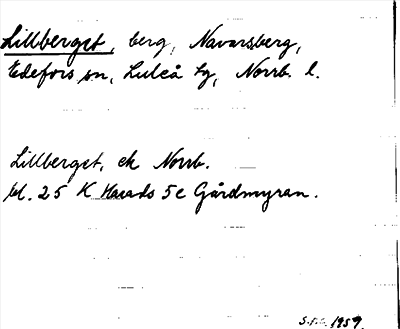 Lillberget, berg, Navarsberg,
Edefors sn, Luleå tg, Norrb. l.
Lillberget, ek Norrb.
bl. 25 K Harads 5e Gårdmyran.
1959.